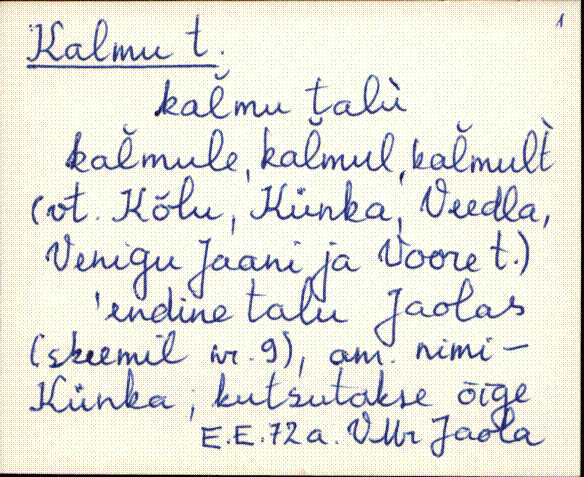 1
Kalmu t.
kal̆mu talù
kal̆mule, kal̆mul, kal̆mul̀t
(vt. Kõlu, Künka, Veedla,
Venigu Jaani ja Voore t.)
'endine talu Jaolas
(skeemil nr. 9), am. nimi –
Künka; kutsutakse õige
E.E. 72 a. VMr Jaola